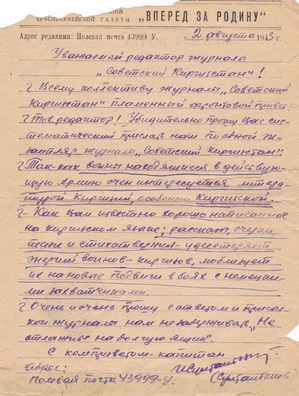 КРАСНОАРМЕЙСКОЙ ГАЗЕТЫ „ВПЕРЕД ЗА РОДИНУ"
Адрес редакции: Полевая почта 43999 У. 2 августа 1943 г.
Уважаемый редактор журнала
„Советский Киргизстан"!
Всему коллективу журнала „Советский
Киргизстан" пламенный фронтовой привет!
Тов. редактор! Убедительно прошу Вас сис-
тематический
журнала „Советский Киргизстан"!
Так как воины находящиеся в действую-
щую армию очень интересуется литера-
турой Киргизии, особенно Киргизской
Как Вам известно хорошо написанное
на киргизском языке; рассказы, очерки,
песни и стихотворения - удесетеряет
энергий воинов-киргизов, мобилизует
их на новые подвиги в боях с немецки-
ми захватчиками.
Очень и очень прошу с ответом и присыл-
кой журналы нам не задерживать, „Не
отлаживе на долгую ящик".
С комприветом - капитан
Адрес:
Полевая почта 43999-У.